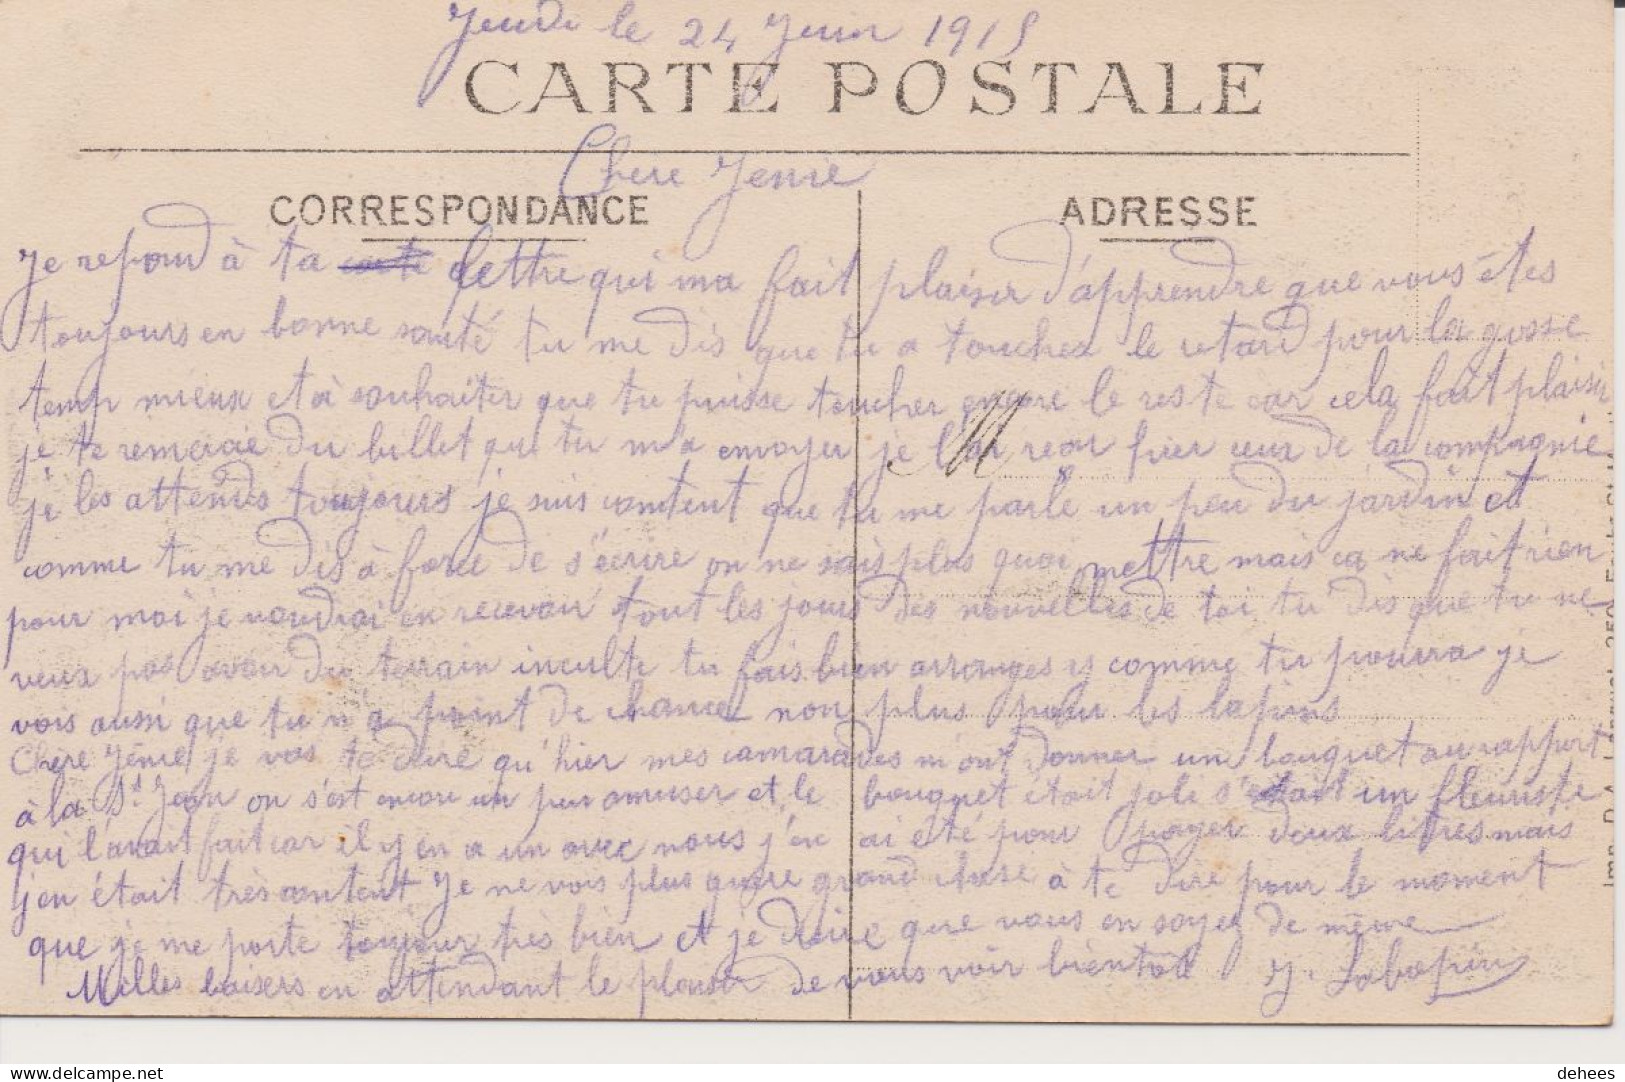 Jeudi le 24 Juin 1915
CARTE POSTALE
Chere Jenie
CORRESPONDANCE
ADRESSE
Je repond à ta carte lettre qui ma fait plaisir d'apprendre que vous êtes
toujours en bonne santé tu me dis que tu a touchez le retard pour la gosse
temp mieux et à souhaiter que tu puisse toucher encore le reste car cela fait plaisir
je te remercie du billet que tu m'a envoyer je l'ai ceux de la compagnie
je les attends toujours je suis content que tu me parle un peu du jardin et
comme tu me dis à force de s'écrire on ne sais plus quoi mettre mais ca ne fait rien
pour moi je voudrai en recevoir tout les jours des nouvelles de toi tu dis que tu ne
veux pas avoir du terrain inculte tu fais bien arranges y comme tu pourra je
vois aussi que tu n'a point de chance non plus pour les lapins
Chère Jénie je vas te dire qu'hier mes camarades m'ont donner un bouquet au rapport
à la St Jean on s'est encore un peu amuser et le bouquet était joli s'etait un fleuriste
qui l'avait fait car il y en a un avec nous j'en ai été pour payer deux litres mais
j'en était très content Je ne vois plus guère grand chose à te dire pour le moment
que je me porte toujour très bien et je désire que vous en soyez de même
Milles baisers en attendant le plaisir de vous voir bientot J. Labopin
Imp.
dehees